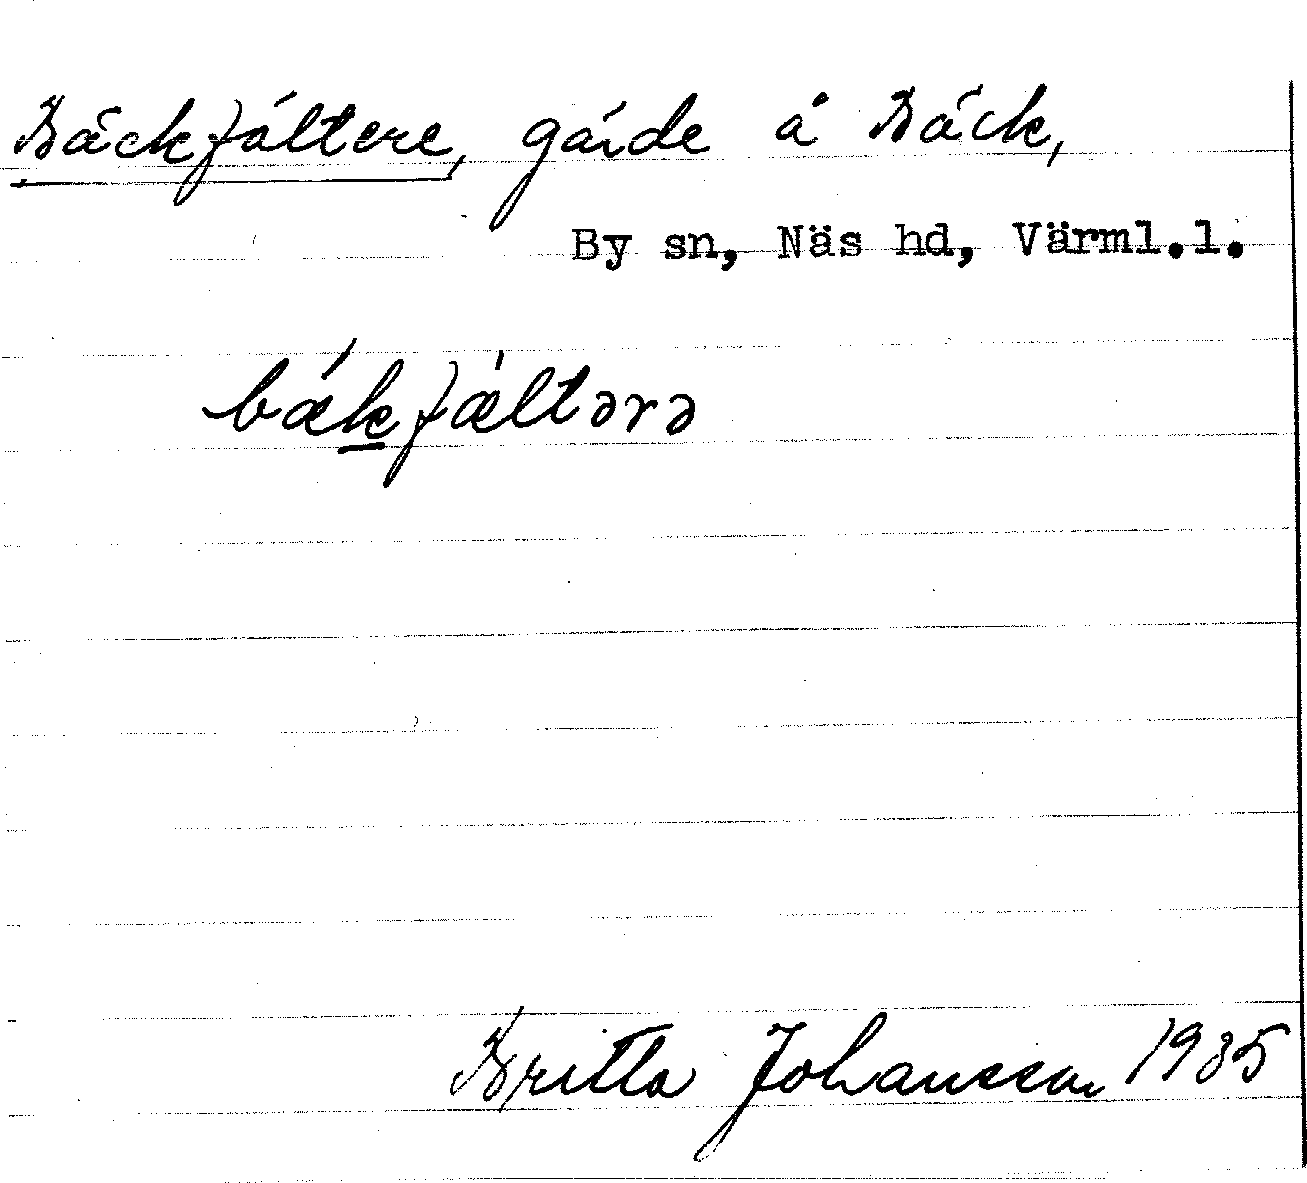 Bäckfältere, gärde å Bäck,
By sn, Näs hd, Värml.l.
bǽkfæ̀ltərə
Britta Johansson 1935